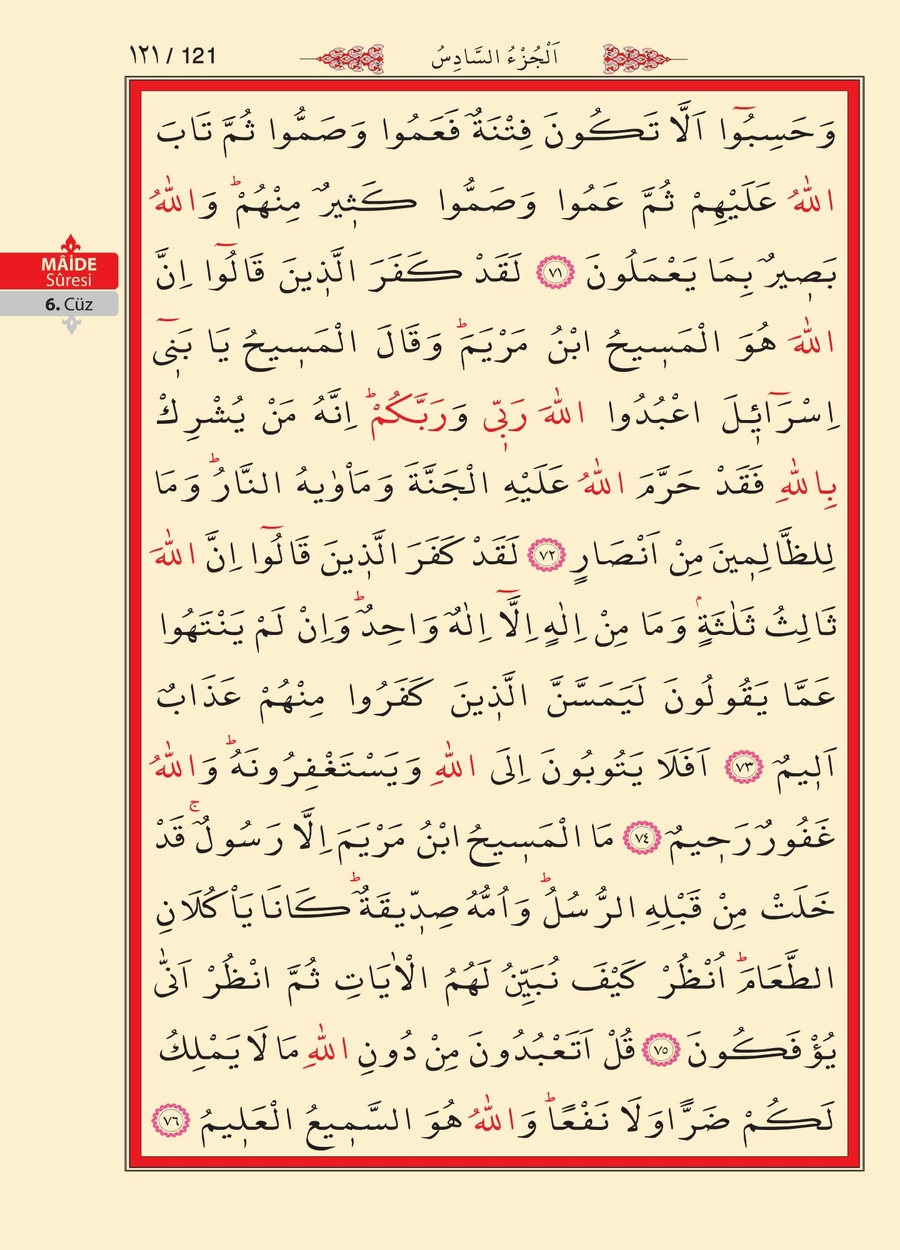 ١٢١ / 121
اَلْجُزْءُ السَّادِسُ
MÂİDE
Sûresi
6. Cüz
وَحَسِبُٓوا اَلَّا تَكُونَ فِتْنَةٌ فَعَمُوا وَصَمُّوا ثُمَّ تَابَ
اللّٰهُ عَلَيْهِمْ ثُمَّ عَمُوا وَصَمُّوا كَث۪يرٌ مِنْهُمْۜ وَاللّٰهُ
بَص۪يرٌ بِمَا يَعْمَلُونَ ﴿٧١﴾ لَقَدْ كَفَرَ الَّذ۪ينَ قَالُٓوا اِنَّ
اللّٰهَ هُوَ الْمَس۪يحُ ابْنُ مَرْيَمَۜ وَقَالَ الْمَس۪يحُ يَا بَن۪ٓي
اِسْرَٓاء۪يلَ اعْبُدُوا اللّٰهَ رَبّ۪ي وَرَبَّكُمْۜ اِنَّهُ مَنْ يُشْرِكْ
بِاللّٰهِ فَقَدْ حَرَّمَ اللّٰهُ عَلَيْهِ الْجَنَّةَ وَمَأْوٰيهُ النَّارُۜ وَمَا
لِلظَّالِم۪ينَ مِنْ اَنْصَارٍ ﴿٧٢﴾ لَقَدْ كَفَرَ الَّذ۪ينَ قَالُٓوا اِنَّ اللّٰهَ
ثَالِثُ ثَلٰثَةٍۢ وَمَا مِنْ اِلٰهٍ اِلَّٓا اِلٰهٌ وَاحِدٌۜ وَاِنْ لَمْ يَنْتَهُوا
عَمَّا يَقُولُونَ لَيَمَسَّنَّ الَّذ۪ينَ كَفَرُوا مِنْهُمْ عَذَابٌ
اَل۪يمٌ ﴿٧٣﴾ اَفَلَا يَتُوبُونَ اِلَى اللّٰهِ وَيَسْتَغْفِرُونَهُۜ وَاللّٰهُ
غَفُورٌ رَح۪يمٌ ﴿٧٤﴾ مَا الْمَس۪يحُ ابْنُ مَرْيَمَ اِلَّا رَسُولٌۚ قَدْ
خَلَتْ مِنْ قَبْلِهِ الرُّسُلُۜ وَاُمُّهُ صِدّ۪يقَةٌۜ كَانَا يَأْكُلَانِ
الطَّعَامَۜ اُنْظُرْ كَيْفَ نُبَيِّنُ لَهُمُ الْاٰيَاتِ ثُمَّ انْظُرْ اَنّٰى
يُؤْفَكُونَ ﴿٧٥﴾ قُلْ اَتَعْبُدُونَ مِنْ دُونِ اللّٰهِ مَا لَا يَمْلِكُ
لَكُمْ ضَرًّا وَلَا نَفْعًاۜ وَاللّٰهُ هُوَ السَّم۪يعُ الْعَل۪يمُ ﴿٧٦﴾